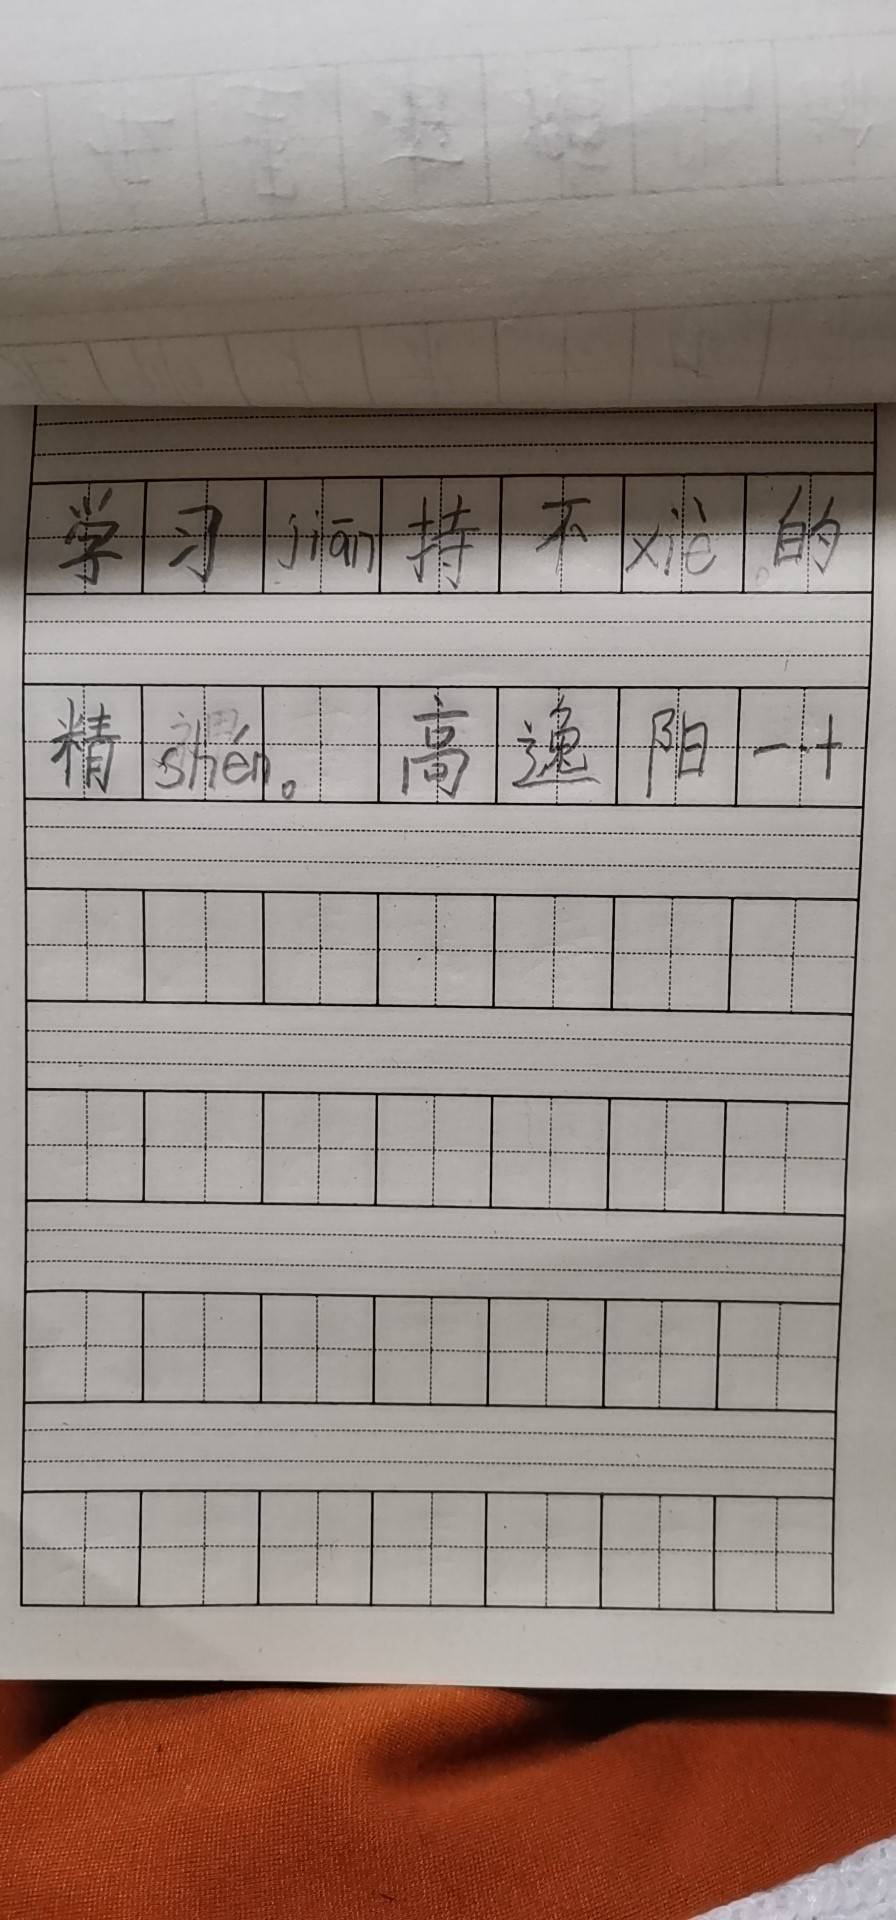 学习jiān持不xiè的
精shén。高逸阳一十